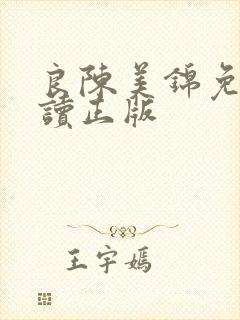 良陳美錦免
讀正版
王宇嫣